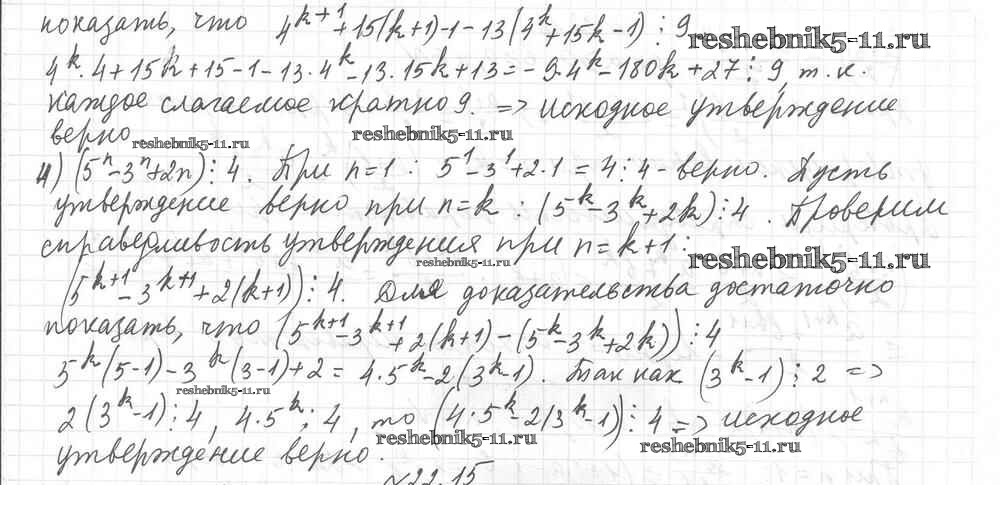 показать, что 4^{k+1}+15(k+1)-1-13(4^k+15k-1)⋮9
reshebnik5-11.ru
4^k·4+15k+15-1-13·4^k-13·15k+13=-9·4^k-180k+27⋮9, т.к.
каждое слагаемое кратно 9. => исходное утверждение
верно.
reshebnik5-11.ru
reshebnik5-11.ru
4) (5^n-3^n+2n)⋮4. При n=1: 5^1-3^1+2·1=4⋮4-верно. Пусть
утверждение верно при n=k: (5^k-3^k+2k)⋮4. Проверим
справедливость утверждения при n=k+1:
reshebnik5-11.ru
reshebnik5-11.ru
(5^{k+1}-3^{k+1}+2(k+1))⋮4. Для доказательства достаточно
показать, что (5^{k+1}-3^{k+1}+2(k+1)-(5^k-3^k+2k))⋮4
5^k(5-1)-3^k(3-1)+2=4·5^k-2(3^k-1). Так как (3^k-1)⋮2 =>
reshebnik5-11.ru
2(3^k-1)⋮4, 4·5^k⋮4, то (4·5^k-2(3^k-1))⋮4 => исходное
reshebnik5-11.ru
reshebnik5-11.ru
утверждение верно.
№22.15